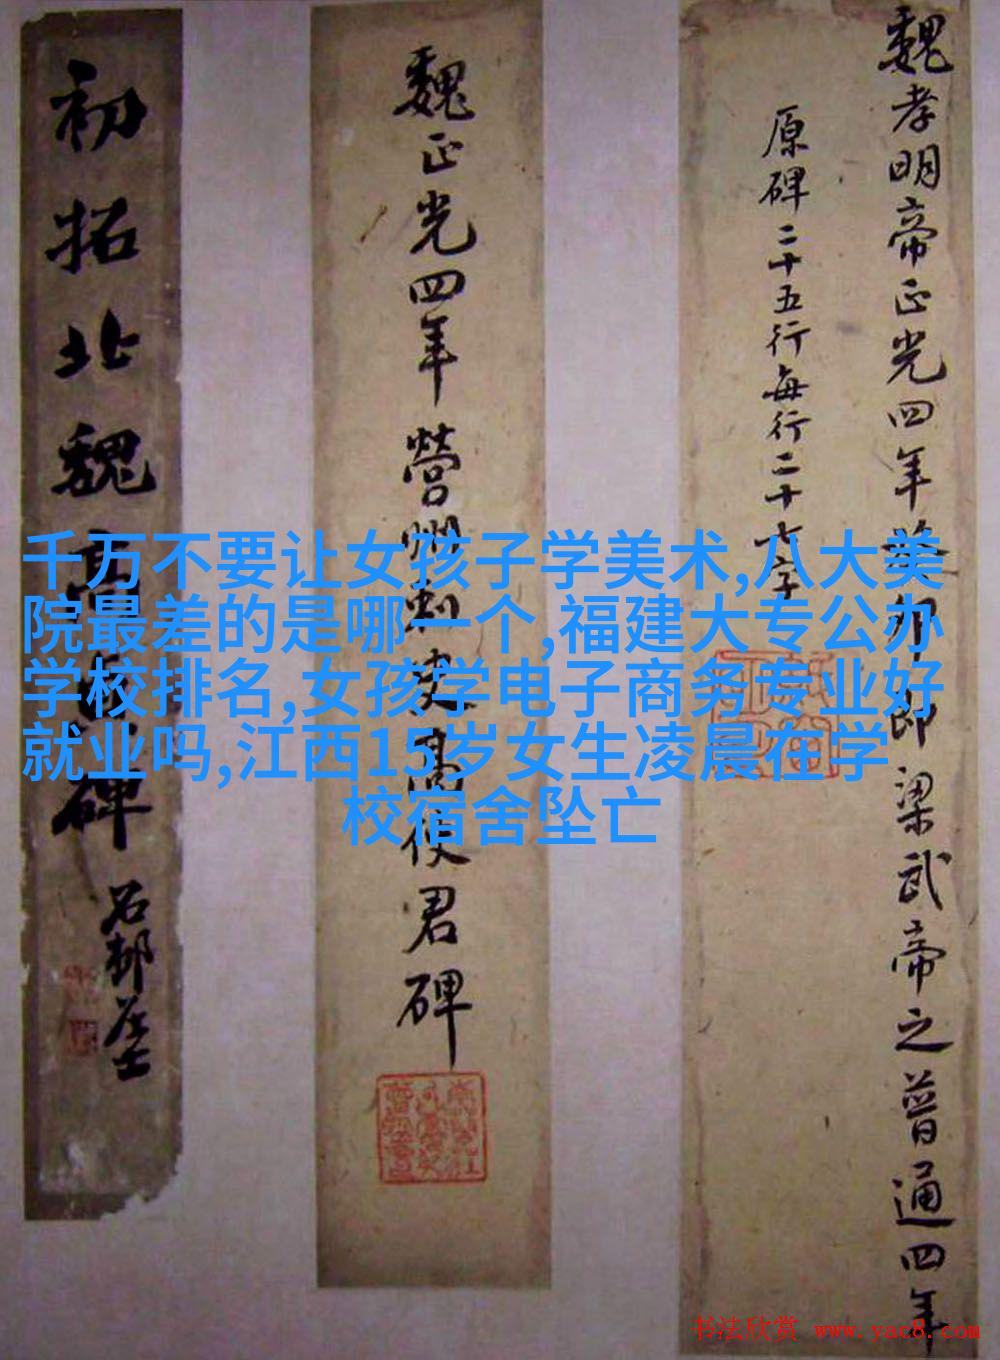 魏孝明帝正光四年癸卯即梁武帝之普通四年
原碑二十五行每行二十七字
魏正光四年營州刺史高使君碑
初拓北魏高貞碑
石邨居士
千万不要让女孩子学美术,八大美
院最差的是哪一个,福建大专公办
学校排名,女孩学电子商务专业好
就业吗,江西15岁女生凌晨在学
校宿舍坠亡
书法欣赏 www.yac8.com